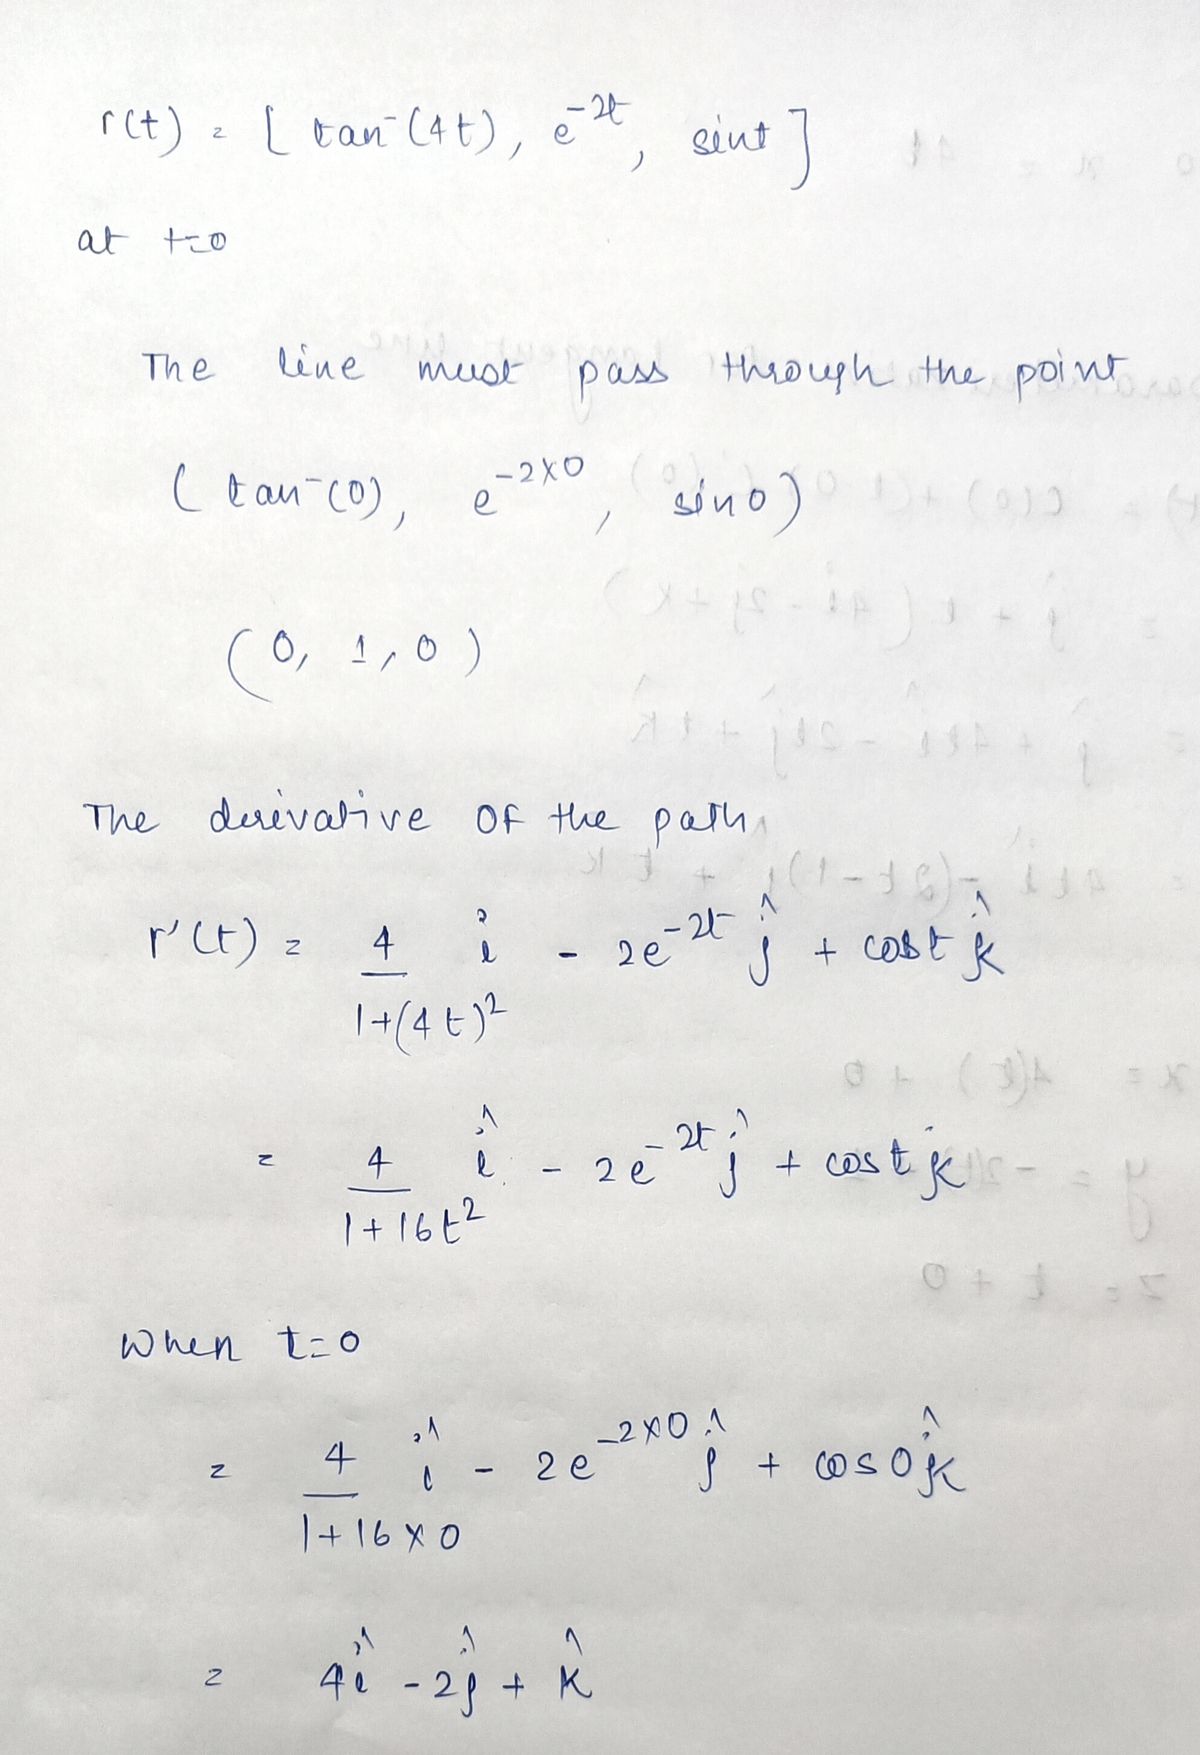 r(t) = [ tan⁻(4t), e^-2t, sint ]
at t=0
The line must pass through the point
( tan⁻(0), e^-2×0, sin0)
(0, 1, 0)
The derivative of the path
r'(t) = 4/1+(4t)² î - 2e^-2t ĵ + cost k̂
= 4/1+16t² î - 2e^-2t ĵ + cost k
When t=0
= 4/1+16×0 î - 2e^-2×0 ĵ + cos0 k̂
= 4î - 2ĵ + k̂